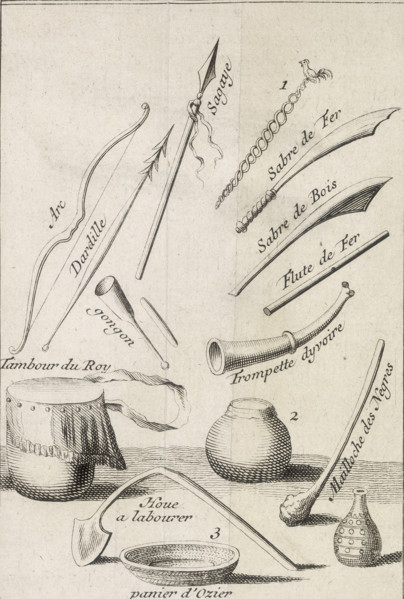 Sagaye
1
Sabre de Fer
Arc
Dardille
Sabre de Bois
Flute de Fer
gongon
Trompette dyvoire
Tambour du Roy
2
Mailloche des Négres
Houe
a labourer
3
panier d'Ozier